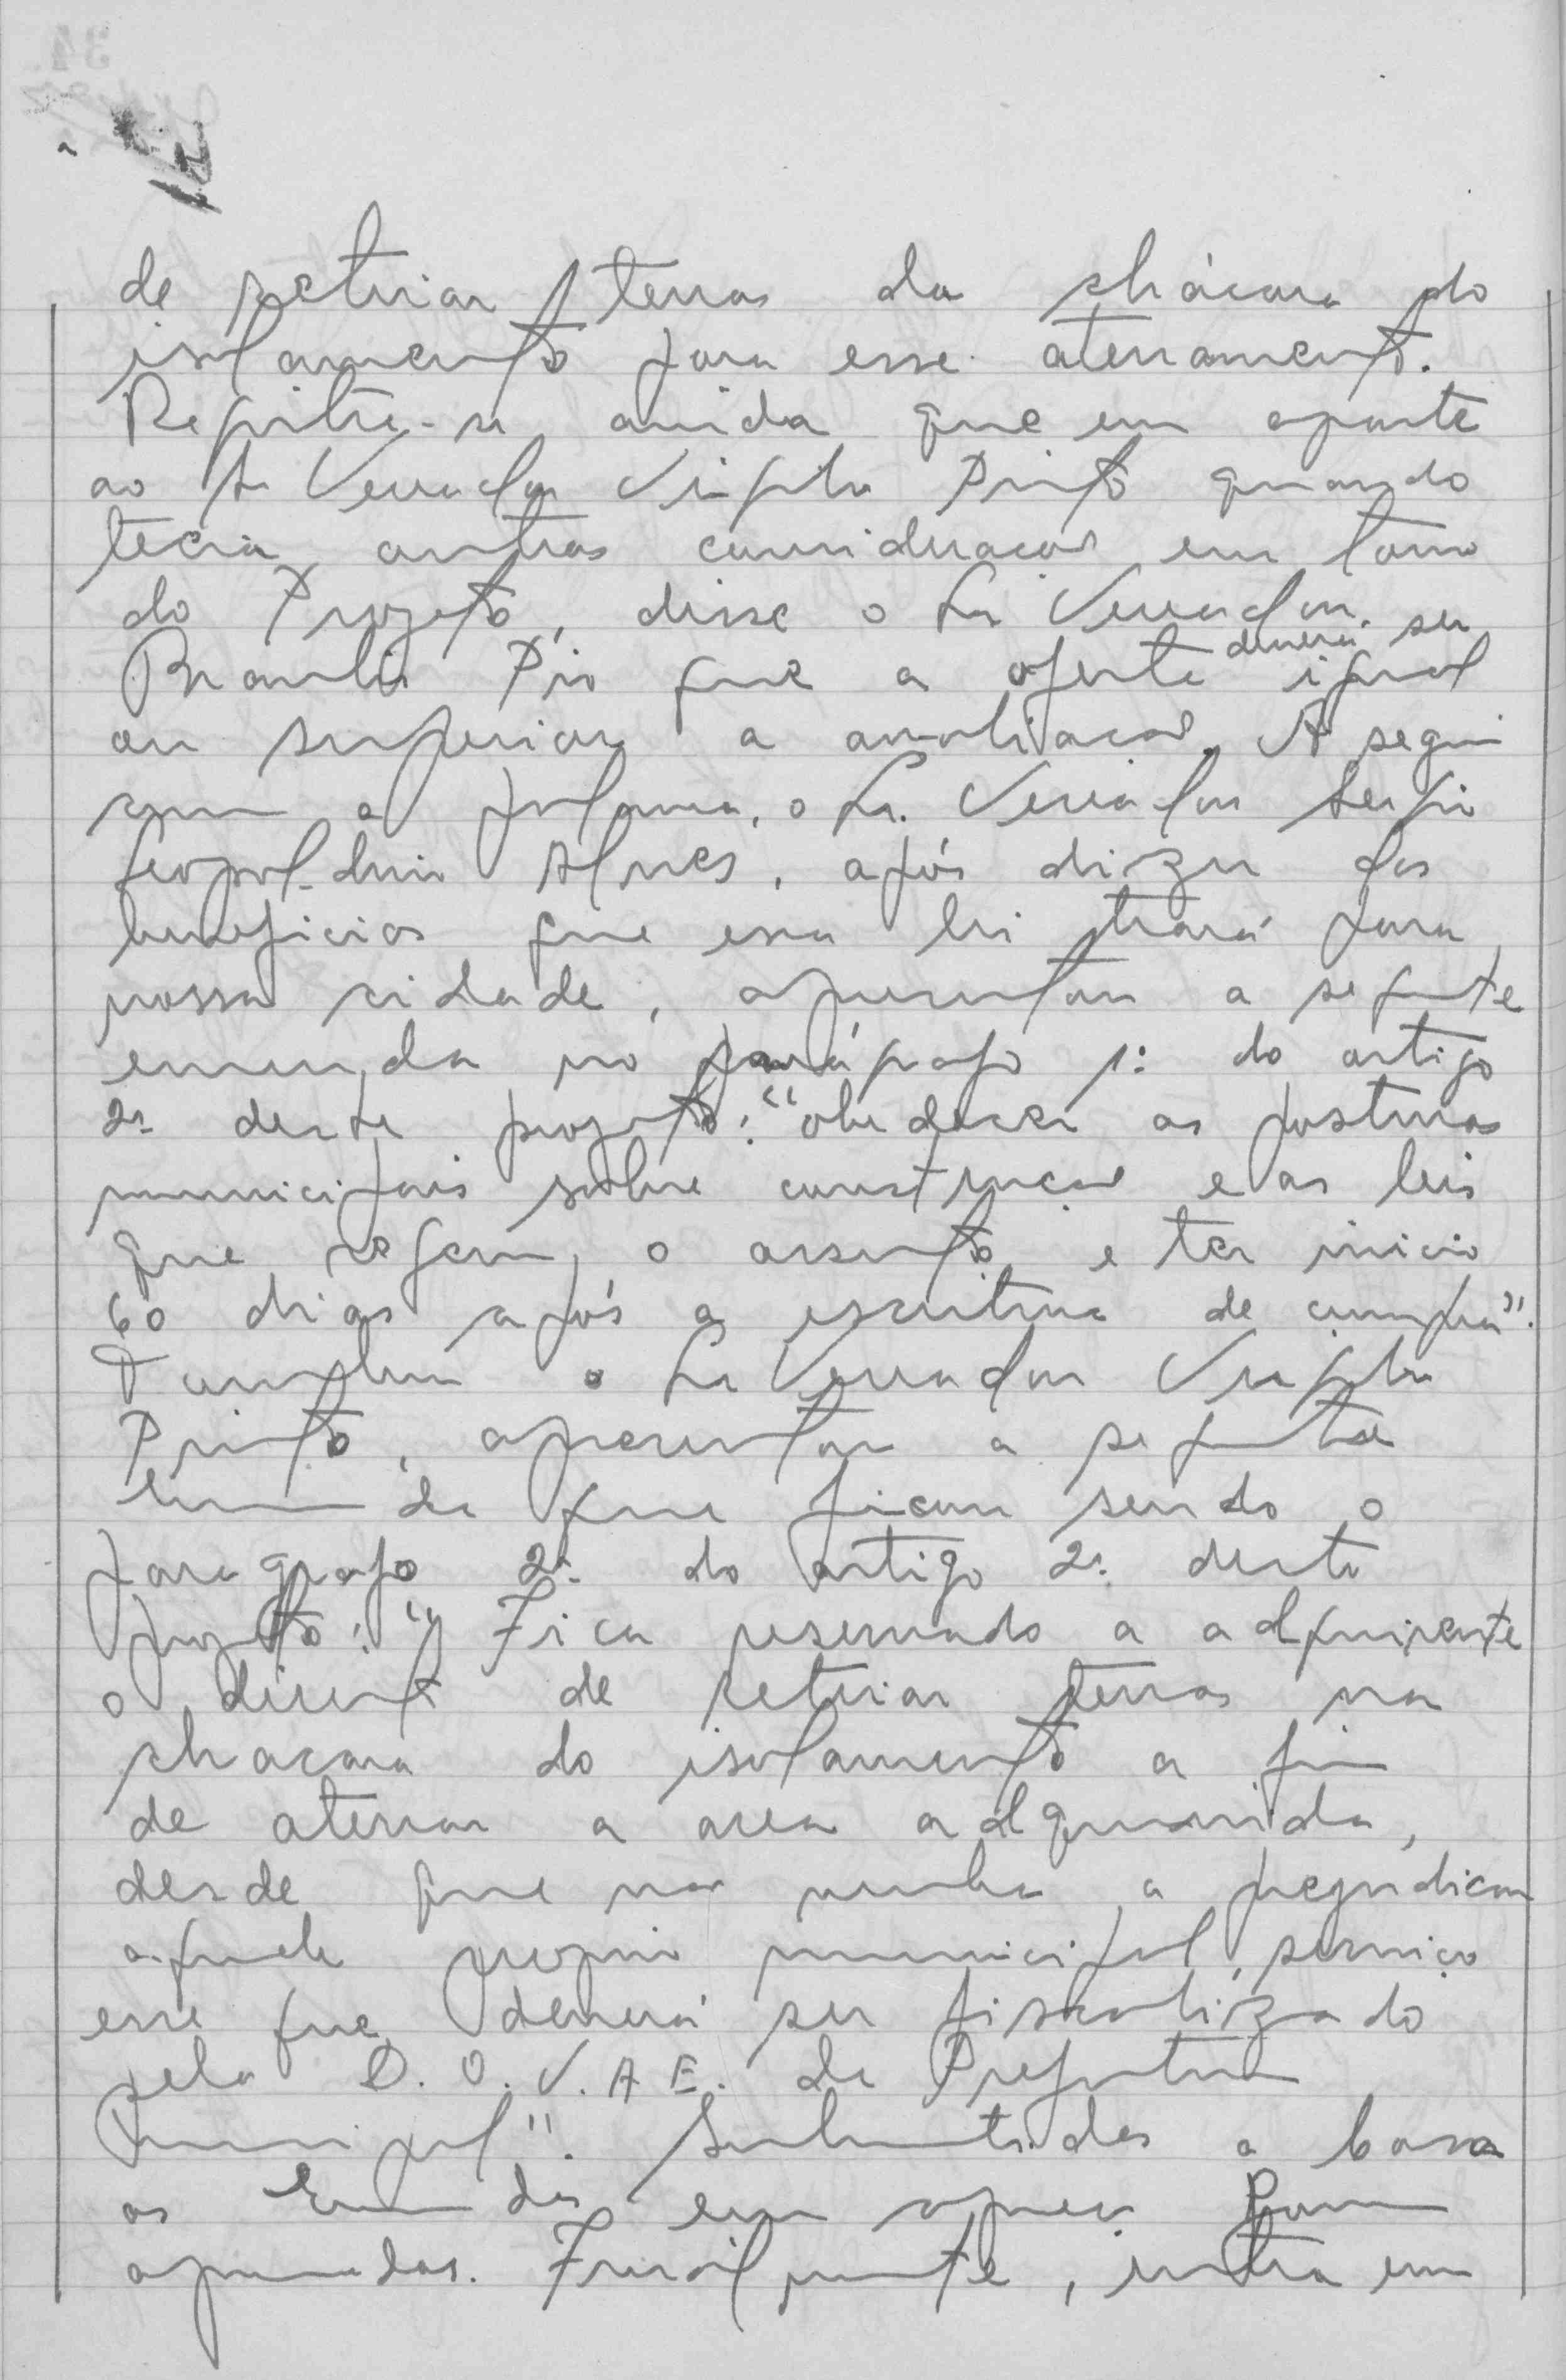 de retirar terras da chácara do
isolamento para esse aterramento.
Registre-se ainda que em aparte
ao Sr Vereador Pinto quando
tecia outras considerações em torno
do Projeto, disse o Sr Vereador
Braulio Pio que a oferta deverá ser igual
ou superior a avaliação. A seguir
com a palavra, o Sr. Vereador Sergio
Leopoldino Alves, após dizer dos
beneficios que essa lei trará para
nossa cidade, apresentou a seguinte
emenda no parágrafo 1º do artigo
2º deste projeto: "obedecer as posturas
municipais sobre construção e as leis
que regem o assunto e ter inicio
60 dias após a escritura de compra".
Tambem o Sr Vereador
Pinto, apresentou a seguinte
emenda que ficou sendo o
paragrafo 2º do artigo 2º deste
projeto: "Fica reservado a adquirente
o direito de retirar terras na
chacara do isolamento a fim
de aterrar a area adquirida,
desde que não venha a prejudicar
aquele proprio municipal, serviço
esse que deverá ser fiscalizado
pela D.O.V.A.E. da Prefeitura
Municipal". Submetidas a casa
as Emendas em apreço foram
aprovadas. Finalmente, entra em